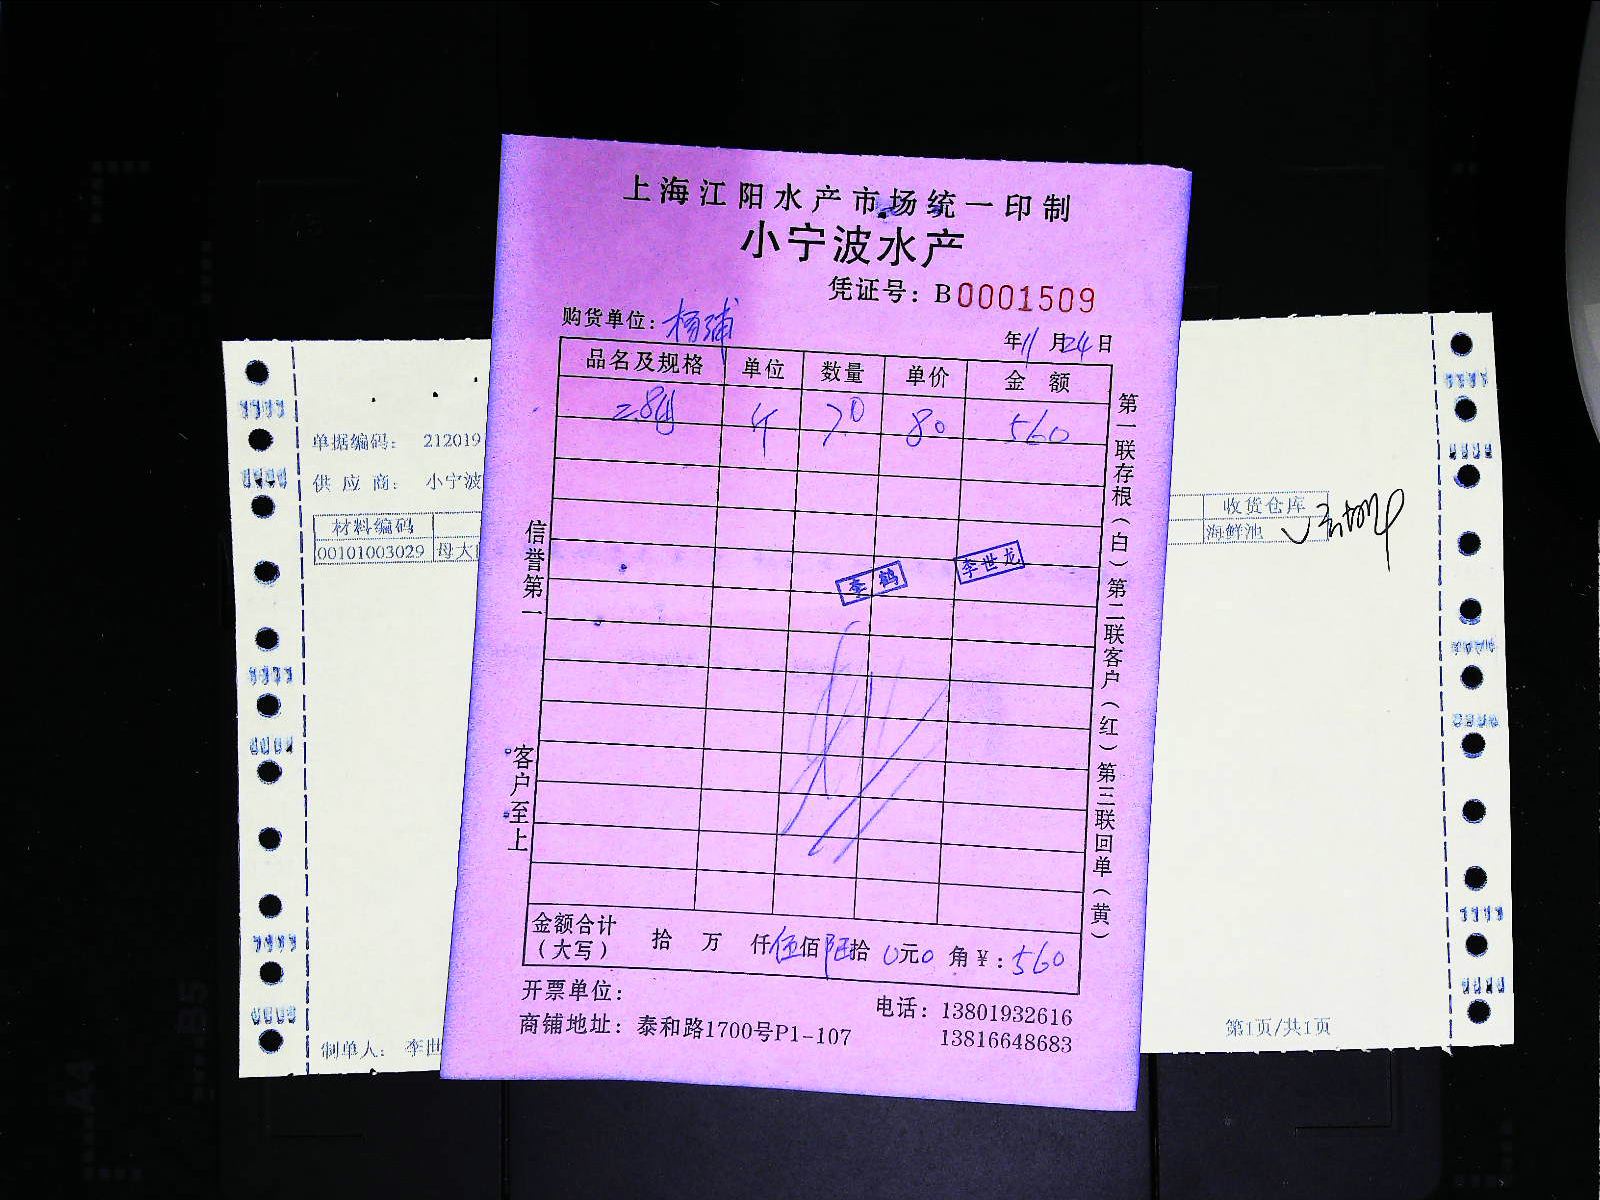 上海江阳水产市场统一印制
小宁波水产
凭证号：B0001509
购货单位：杨浦
年11月24日
品名及规格 单位 数量 单价 金额
斤 7.0 80 560
李鹤 李世龙
信誉第一
客户至上
第一联存根（白）第二联客户（红）第三联回单（黄）
金额合计（大写） 拾 万 仟伍佰陆拾0元0角￥：560
开票单位：
商铺地址：泰和路1700号P1-107
电话：13801932616
13816648683
单据编码： 212019
供应商： 小宁波
材料编码
00101003029 母大
收货仓库
海鲜池
制单人： 李世
第1页/共1页